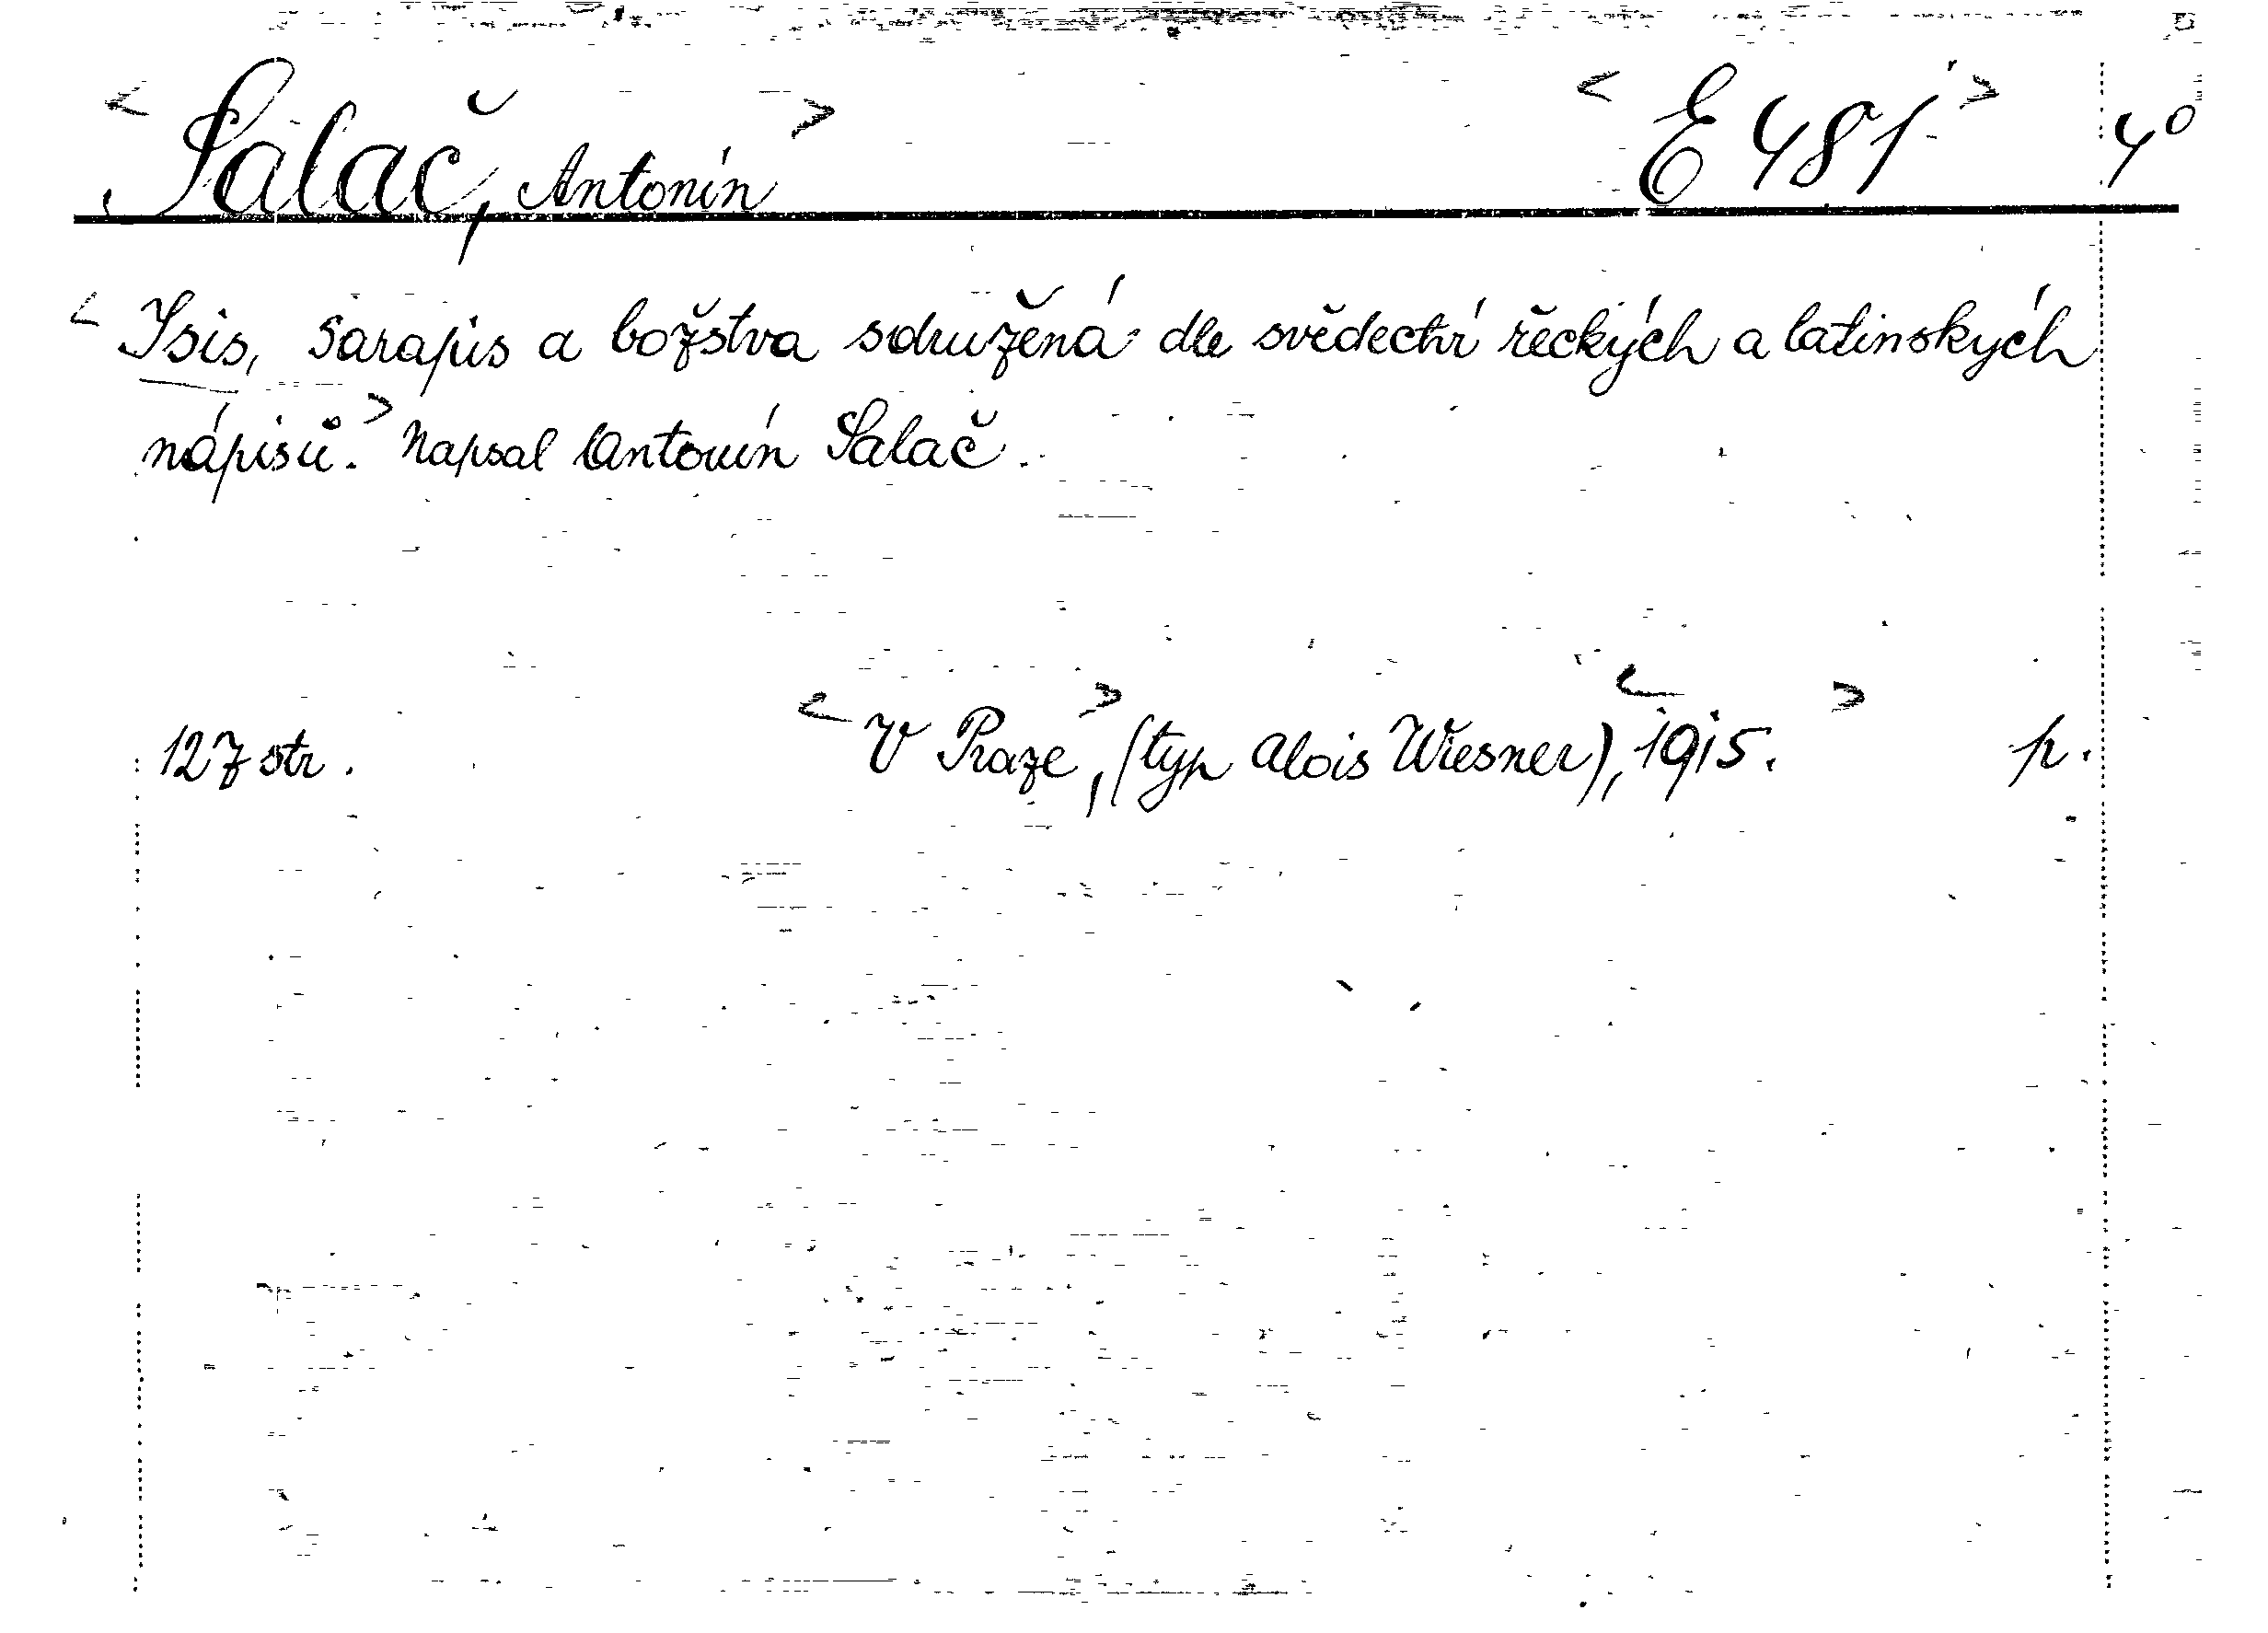 <Salač, Antonín> <E 481> 4°
<Isis, Sarapis a božstva sdružená dle svědectví řeckých a latinských
nápisů.> Napsal Antonín Salač.
127 str. <V Praze>, (typ Alois Wiesner), <1915.> p.